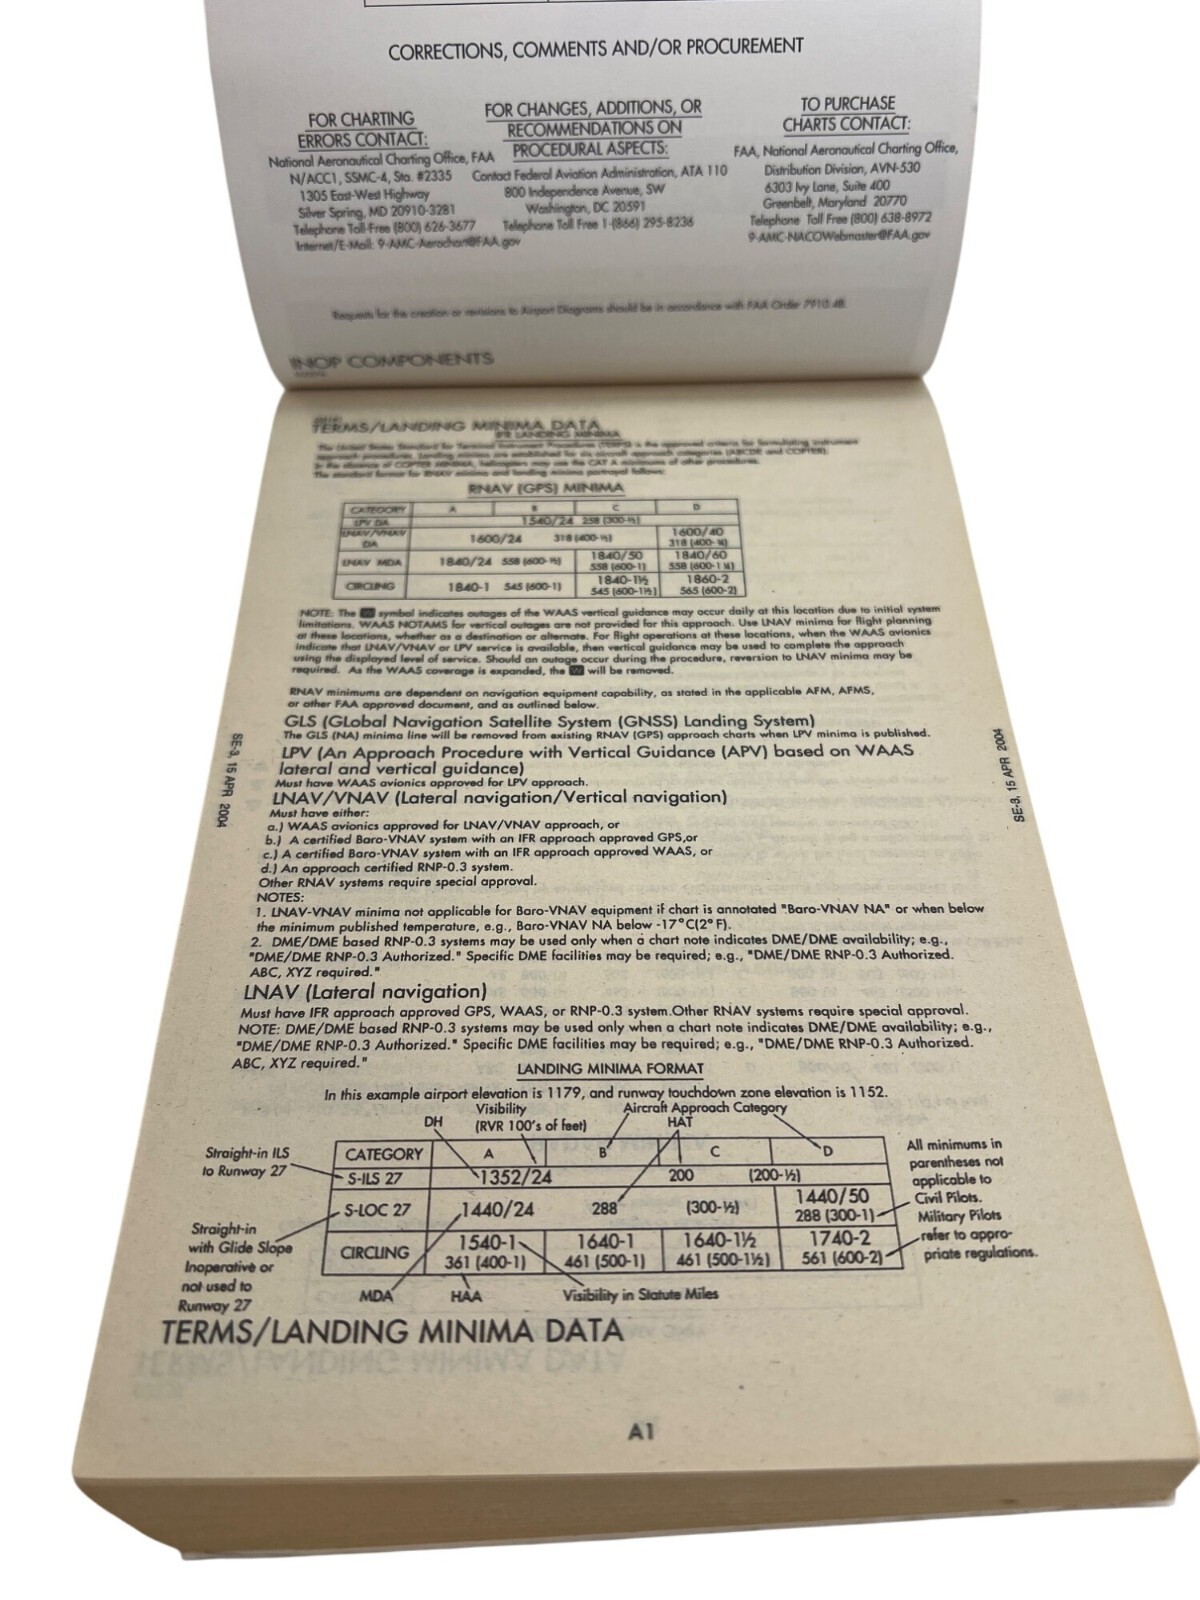 CORRECTIONS, COMMENTS AND/OR PROCUREMENT
FOR CHARTING
ERRORS CONTACT:
National Aeronautical Charting Office, FAA
N/ACC1, SSMC-4, Sta. #2335
1305 East-West Highway
Silver Spring, MD 20910-3281
Telephone Toll-Free (800) 626-3677
Internet/E-Mail: 9-AMC-Aerochart@FAA.gov
FOR CHANGES, ADDITIONS, OR
RECOMMENDATIONS ON
PROCEDURAL ASPECTS:
Contact Federal Aviation Administration, ATA 110
800 Independence Avenue, SW
Washington, DC 20591
Telephone Toll Free 1-(866) 295-8236
TO PURCHASE
CHARTS CONTACT:
FAA, National Aeronautical Charting Office,
Distribution Division, AVN-530
6303 Ivy Lane, Suite 400
Greenbelt, Maryland 20770
Telephone Toll Free (800) 638-8972
9-AMC-NACOWebmaster@FAA.gov
Requests for the creation or revisions to Airport Diagrams should be in accordance with FAA Order 7910.4B.
INOP COMPONENTS
TERMS/LANDING MINIMA DATA
IFR LANDING MINIMA
The United States Standard for Terminal Instrument Procedures (TERPS) is the approved criteria for formulating instrument
approach procedures. Landing minima are established for six aircraft approach categories (ABCDE and COPTER).
In the absence of COPTER MINIMA, helicopters may use the CAT A minimums of other procedures.
The standard format for RNAV minima and landing minima portrayal follows:
RNAV (GPS) MINIMA
CATEGORY A B C D
LPV DA 1540/24 258 (300-½)
LNAV/VNAV DA 1600/24 318 (400-½) 1600/40 318 (400-¾)
LNAV MDA 1840/24 558 (600-½) 1840/50 558 (600-1) 1840/60 558 (600-1¼)
CIRCLING 1840-1 545 (600-1) 1840-1½ 545 (600-1½) 1860-2 565 (600-2)
NOTE: The W symbol indicates outages of the WAAS vertical guidance may occur daily at this location due to initial system
limitations. WAAS NOTAMS for vertical outages are not provided for this approach. Use LNAV minima for flight planning
at these locations, whether as a destination or alternate. For flight operations at these locations, when the WAAS avionics
indicate that LNAV/VNAV or LPV service is available, then vertical guidance may be used to complete the approach
using the displayed level of service. Should an outage occur during the procedure, reversion to LNAV minima may be
required. As the WAAS coverage is expanded, the W will be removed.
RNAV minimums are dependent on navigation equipment capability, as stated in the applicable AFM, AFMS,
or other FAA approved document, and as outlined below.
GLS (GLobal Navigation Satellite System (GNSS) Landing System)
The GLS (NA) minima line will be removed from existing RNAV (GPS) approach charts when LPV minima is published.
LPV (An Approach Procedure with Vertical Guidance (APV) based on WAAS
lateral and vertical guidance)
Must have WAAS avionics approved for LPV approach.
LNAV/VNAV (Lateral navigation/Vertical navigation)
Must have either:
a.) WAAS avionics approved for LNAV/VNAV approach, or
b.) A certified Baro-VNAV system with an IFR approach approved GPS,or
c.) A certified Baro-VNAV system with an IFR approach approved WAAS, or
d.) An approach certified RNP-0.3 system.
Other RNAV systems require special approval.
NOTES:
1. LNAV-VNAV minima not applicable for Baro-VNAV equipment if chart is annotated "Baro-VNAV NA" or when below
the minimum published temperature, e.g., Baro-VNAV NA below -17°C(2°F).
2. DME/DME based RNP-0.3 systems may be used only when a chart note indicates DME/DME availability; e.g.,
"DME/DME RNP-0.3 Authorized." Specific DME facilities may be required; e.g., "DME/DME RNP-0.3 Authorized.
ABC, XYZ required."
LNAV (Lateral navigation)
Must have IFR approach approved GPS, WAAS, or RNP-0.3 system.Other RNAV systems require special approval.
NOTE: DME/DME based RNP-0.3 systems may be used only when a chart note indicates DME/DME availability; e.g.,
"DME/DME RNP-0.3 Authorized." Specific DME facilities may be required; e.g., "DME/DME RNP-0.3 Authorized.
ABC, XYZ required."
SE-3, 15 APR 2004
SE-3, 15 APR 2004
LANDING MINIMA FORMAT
In this example airport elevation is 1179, and runway touchdown zone elevation is 1152.
DH
Visibility
(RVR 100's of feet)
Aircraft Approach Category
HAT
Straight-in ILS
to Runway 27
Straight-in
with Glide Slope
Inoperative or
not used to
Runway 27
CATEGORY A B C D
S-ILS 27 1352/24 200 (200-½)
S-LOC 27 1440/24 288 (300-½) 1440/50 288 (300-1)
CIRCLING 1540-1 1640-1 1640-1½ 1740-2
361 (400-1) 461 (500-1) 461 (500-1½) 561 (600-2)
All minimums in
parentheses not
applicable to
Civil Pilots.
Military Pilots
refer to appro-
priate regulations.
MDA
HAA
Visibility in Statute Miles
TERMS/LANDING MINIMA DATA
A1